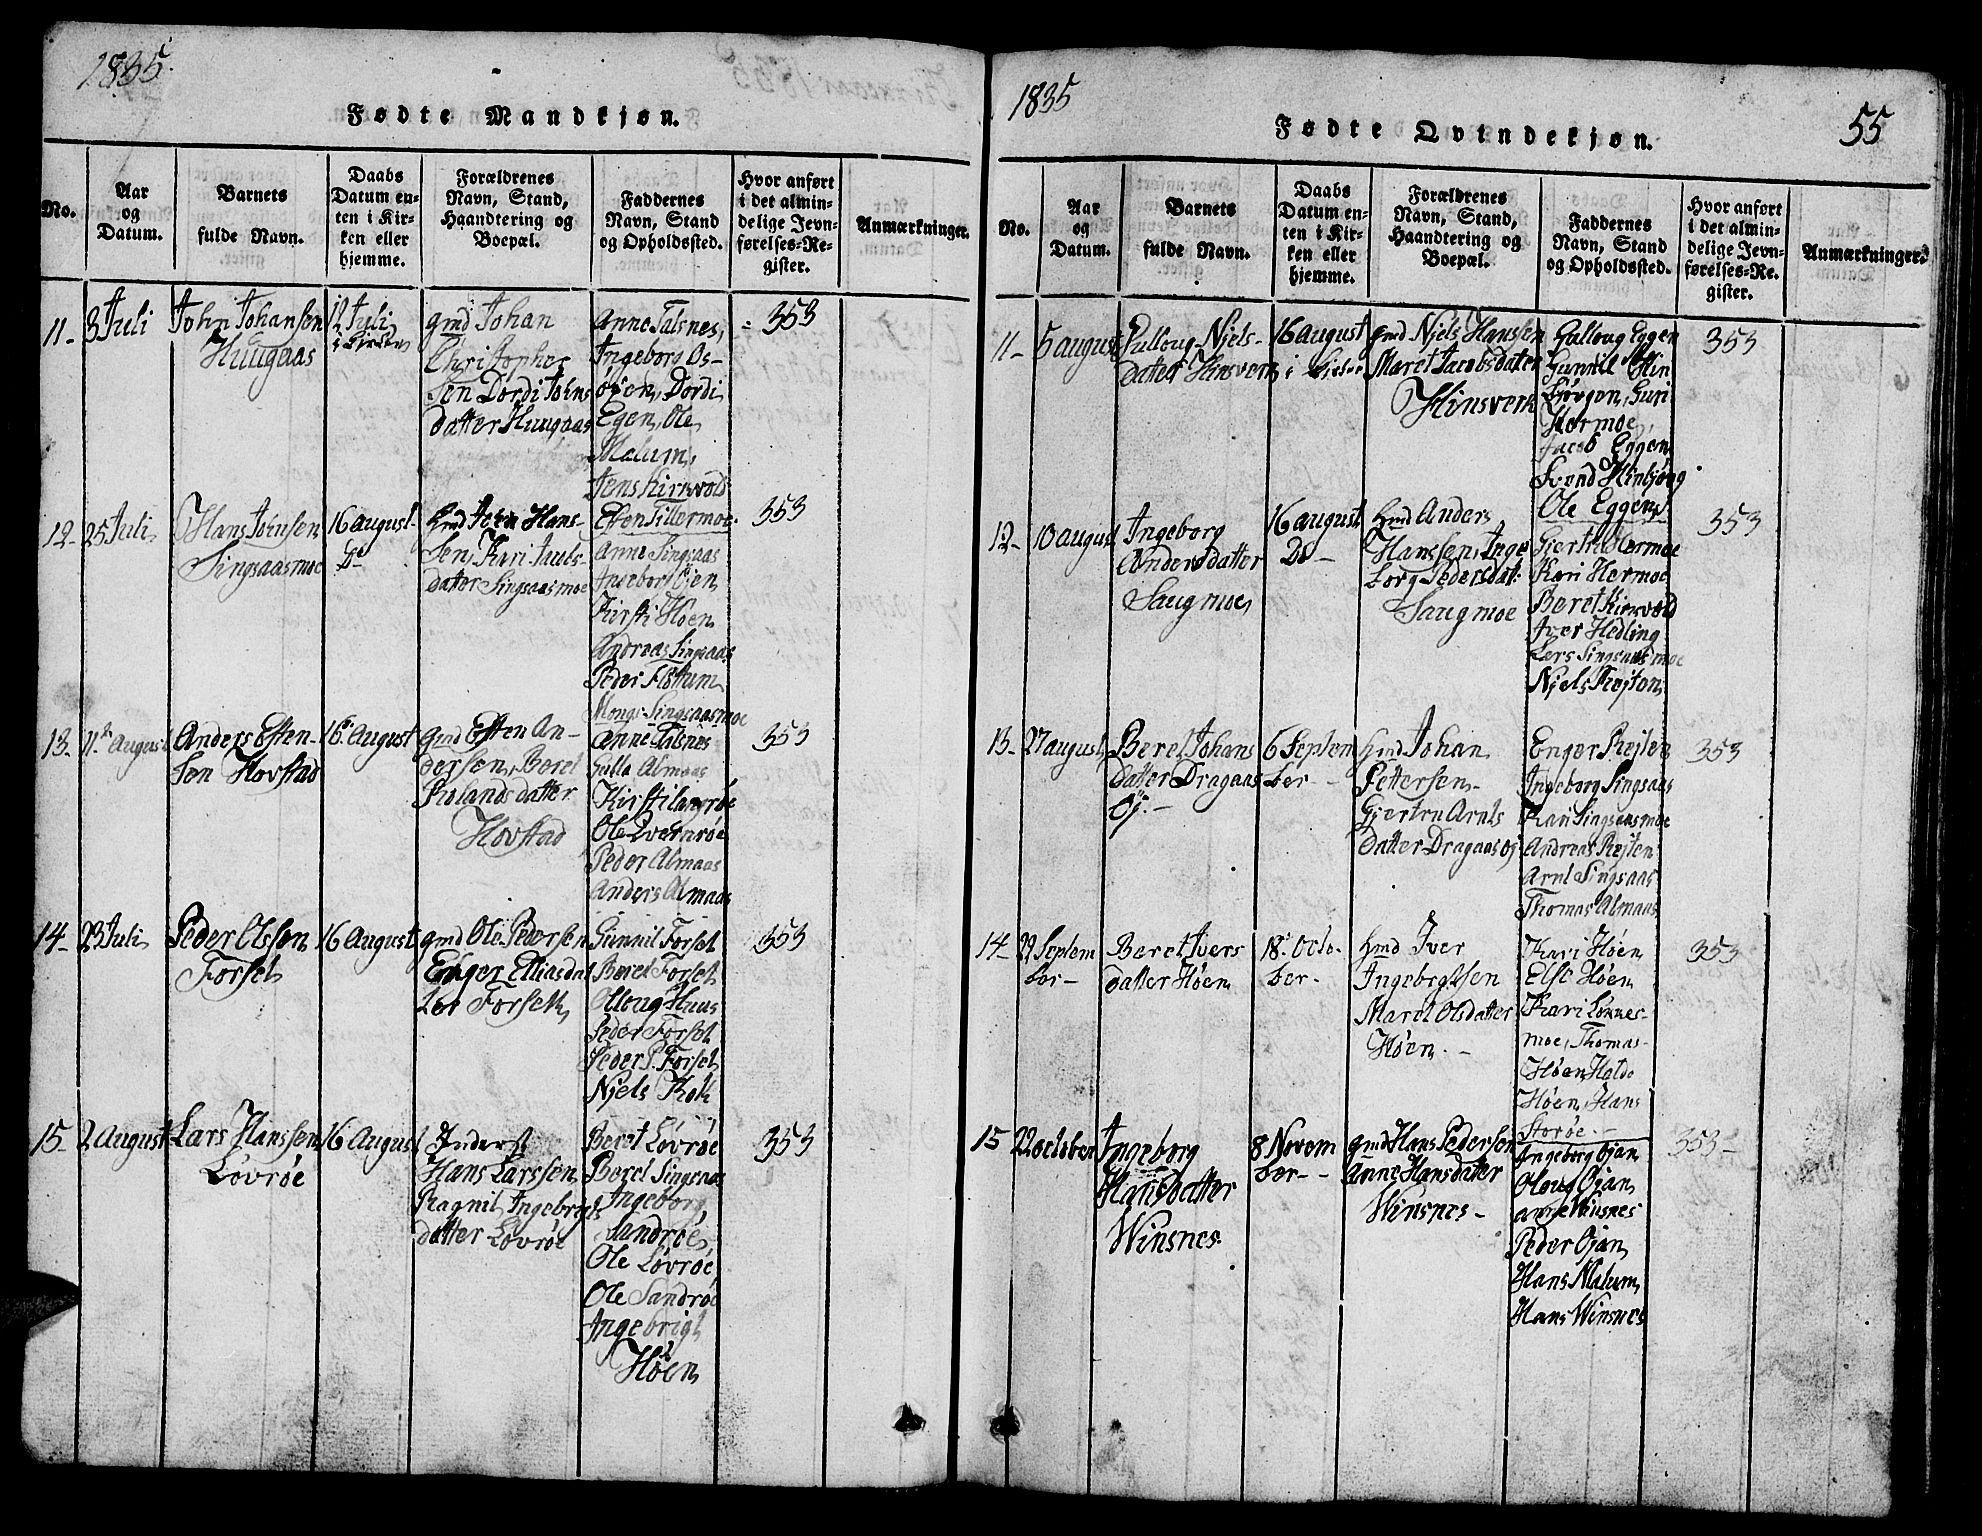 1835.
Fødte Mandkjøn.
No.
Aar
og
Datum.
Barnets
fulde Navn.
Daabs
Datum en-
ten i Kir-
ken eller
hjemme.
Forældrenes
Navn, Stand,
Haandtering og
Boepæl.
Faddernes
Navn, Stand
og Opholdssted.
Hvor anført
i det almin-
delige Jevn-
førelses-Re-
gister.
Anmærkninger.
11-
3 Juli
John Johansen
Huugaas
12 Juli
i Kirken
gmd Johan
Christopher
sen Dordi Johns
datter Huugaas
Anne Talsnes,
Ingeborg Os-
øyen, Dordi
Egen, Ole
Malum,
Jens Kirkvold
353
12-
25 Juli
Hans Johnsen
Singsaasmoe
16 august
Do
hmd John Hans-
sen, Kari Pauls-
datter Singsaasmoe
Esten Tillermoe
Anne Singsaas
Ingeborg Øjen
Kirsti Høen
Andreas Singsaas
Peder Fløttum
Mongs Singsaasmoe
353
13-
11te August
Anders Esten-
sen Hovstad
16 August
gmd Esten An-
dersen, Beret
Rolandsdatter
Hovstad
Anne Talsnes
Gulla Almaas
Kirsti Langrøe
Ole Qvernrøe
Peder Almaas
Anders Almaas
353
14-
23 Juli
Peder Olssen
Forset
16 August
gmd Ole Pedersen
Enger Elliasdat
ter Forseth
Gunnil Forset
Beret Forset
Olloug Huus
Peder Forset
Peder P. Forset
Njels Kok
353
15-
2 August
Lars Hanssen
Løvrøe
16 August
Inderst
Hans Larssen
Ragnil Ingebrigts
datter Løvrøe
Beret Løvrøe
Beret Singsaas
Ingeborg
Sandrøe
Ole Løvrøe
Ole Sandrøe
Ingebrigt
Høen
353
1835
55
Fødte Qvindekjøn.
No.
Aar
og
Datum.
Barnets
fulde Navn.
Daabs
Datum en-
ten i Kir-
ken eller
hjemme.
Forældrenes
Navn, Stand,
Haandtering og
Boepæl.
Faddernes
Navn, Stand
og Opholdssted.
Hvor anført
i det almin-
delige Jevn-
førelses-Re-
gister.
Anmærkninger.
11-
5 august
Njels-
datter Hinsverk
16 august
i Kirken
gmd Njels Hanssen
Maret Jacobsdatter
Hinsverk
Galloug Eggen
Gunnil
Guri
Hermoe
Jacob Eggen
Svend
Ole Eggen
353
12-
10 august
Ingeborg
Andersdatter
Saugmoe
16 august
Do-
hmd Anders
Hanssen, Inge
borg Pedersdat:
Saugmoe
Gjertru Hermoe
Kari Hermoe
Beret Kirkvold
Iver Hedling
Lars Singsaasmoe
Njels Rejten
353
13-
27 august
Beret Johans
datter Dragaas
Øj.-
6 Septem
ber-
hmd Johan
Pettersen
Gjertru Arnts
datter Dragaasøj
Enger Rejten
Ingeborg Singsaas
Kari Singsaasmoe
Andreas Rejten
Arnt Singsaas
Thomas Almaas
353
14-
22 Septem
ber-
Beret Ivers
datter Høen
18. Octo-
ber-
hmd Iver
Ingebrigtsen
Maret Olsdatter
Høen.-
Kari Høen
Else Høen
Kari Løknes-
moe, Thomas
Høen, Haldo
Høen, Hans
Storøe.-
353
15
22 october
Ingeborg
Hansdatter
Winsnes.
8 Novem
ber--
gmd Hans Pedersen
Anne Hansdatter
Winsnes-
Ingeborg Øjan
Oloug Øjan
Anne Winsnes
Peder Øjan
Hans Malum
Hans Winsnes
353-